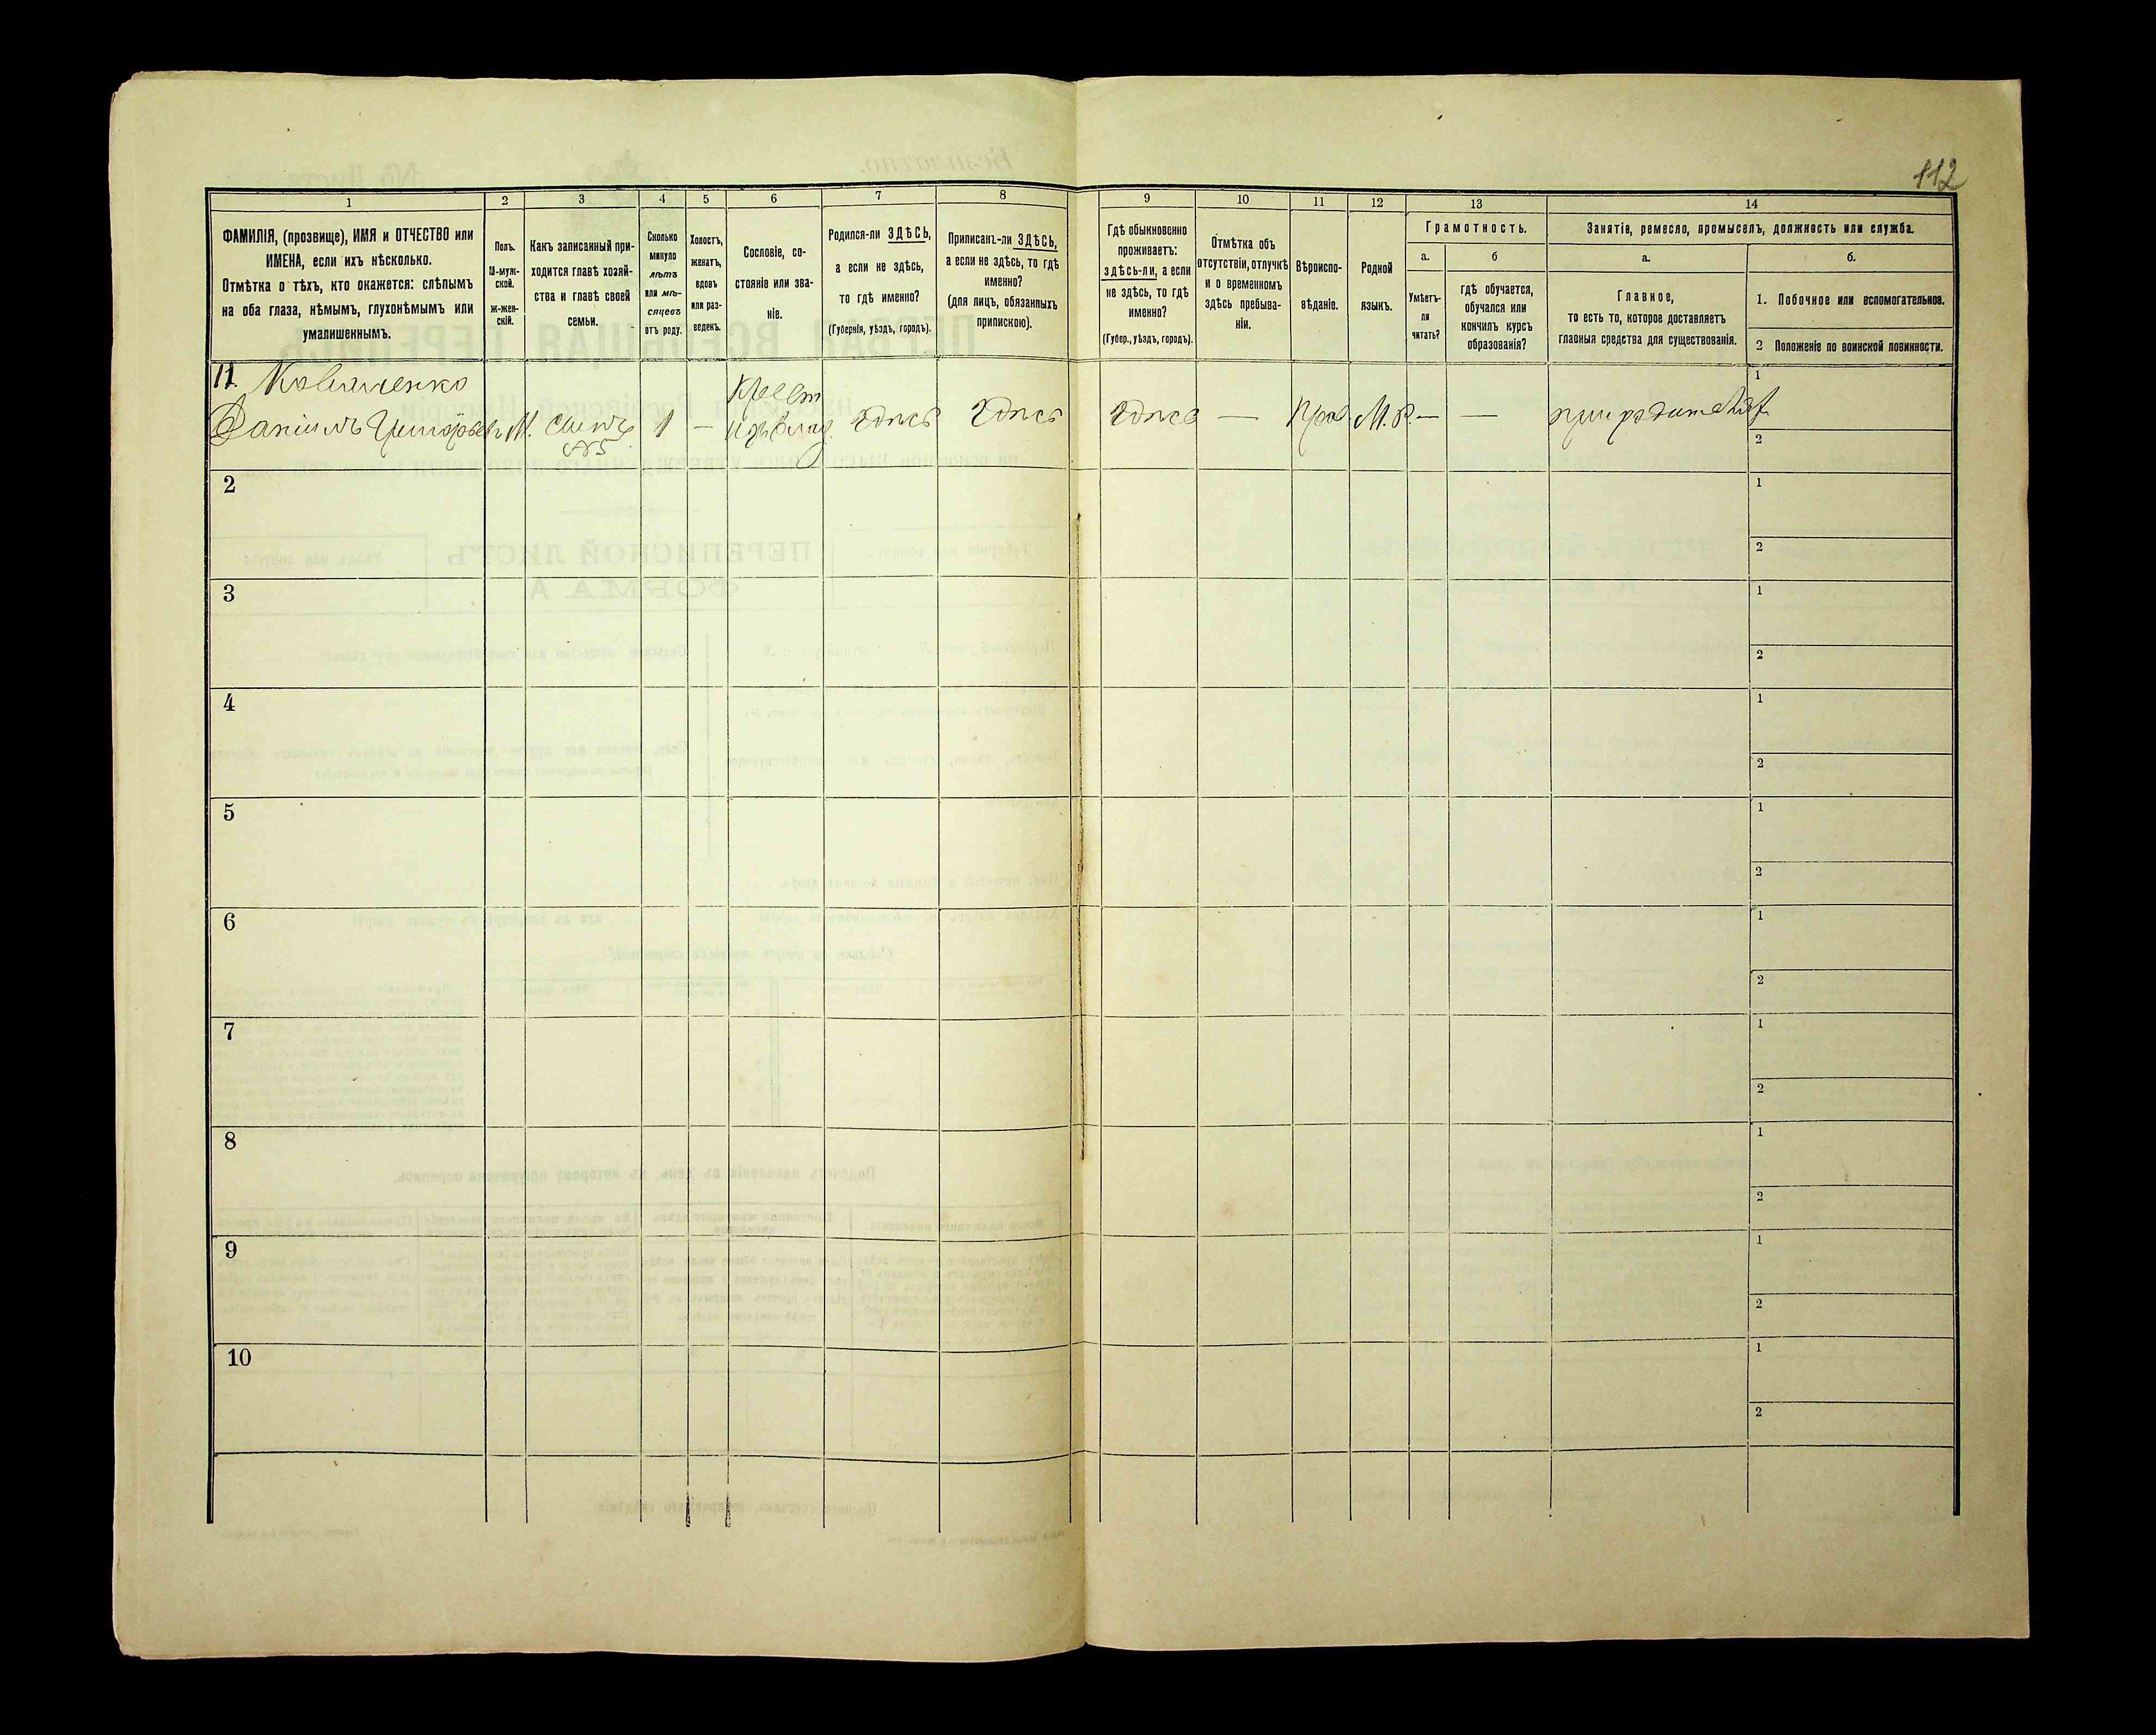 112
1
2
3
4
5
6
7
8
9
10
11
12
13
14
ФАМИЛІЯ, (прозвище), ИМЯ и ОТЧЕСТВО или
ИМЕНА, если ихъ нѣсколько.
Отмѣтка о тѣхъ, кто окажется: слѣпымъ
на оба глаза, нѣмымъ, глухонѣмымъ или
умалишеннымъ.
Полъ.
М-муж-
ской.
Ж-жен-
скій.
Какъ записанный при-
ходится главѣ хозяй-
ства и главѣ своей
семьи.
Сколько
минуло
лѣтъ
или мѣ-
сяцевъ
отъ роду.
Холостъ,
женатъ,
вдовъ
или раз-
веденъ.
Сословіе, со-
стояніе или зва-
ніе.
Родился-ли ЗДѢСЬ,
а если не здѣсь,
то гдѣ именно?
(Губернія, уѣздъ, городъ).
Приписанъ-ли ЗДѢСЬ,
а если не здѣсь, то гдѣ
именно?
(для лицъ, обязанныхъ
припискою).
Гдѣ обыкновенно
проживаетъ:
здѣсь-ли, а если
не здѣсь, то гдѣ
именно?
(Губер., уѣздъ, городъ).
Отмѣтка объ
отсутствіи, отлучкѣ
и о временномъ
здѣсь пребыва-
ніи.
Вѣроиспо-
вѣданіе.
Родной
языкъ.
Грамотность.
а.
Умѣетъ-
ли
читать?
б
гдѣ обучается,
обучался или
кончилъ курсъ
образованія?
Занятіе, ремесло, промыселъ, должность или служба.
а.
Главное,
то есть то, которое доставляетъ
главныя средства для существованія.
б.
1. Побочное или вспомогательное.
2 Положеніе по воинской повинности.
11.
Даніилъ
М.
сынъ
№5
1
—
Крест
изъ влад.
здѣсь
здѣсь
здѣсь
—
Прав.
М.Р.
—
—
1
2
2
1
2
3
1
2
4
1
2
5
1
2
6
1
2
7
1
2
8
1
2
9
1
2
10
1
2